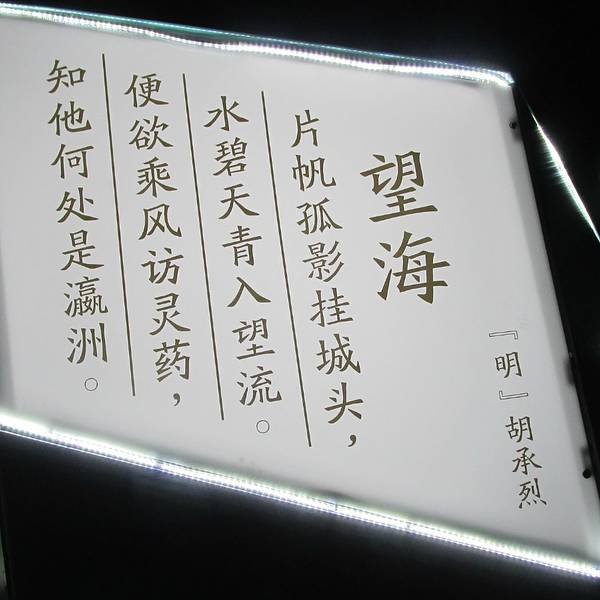 望海
『明』胡承烈
片帆孤影挂城头，
水碧天青入望流。
便欲乘风访灵药，
知他何处是瀛洲。